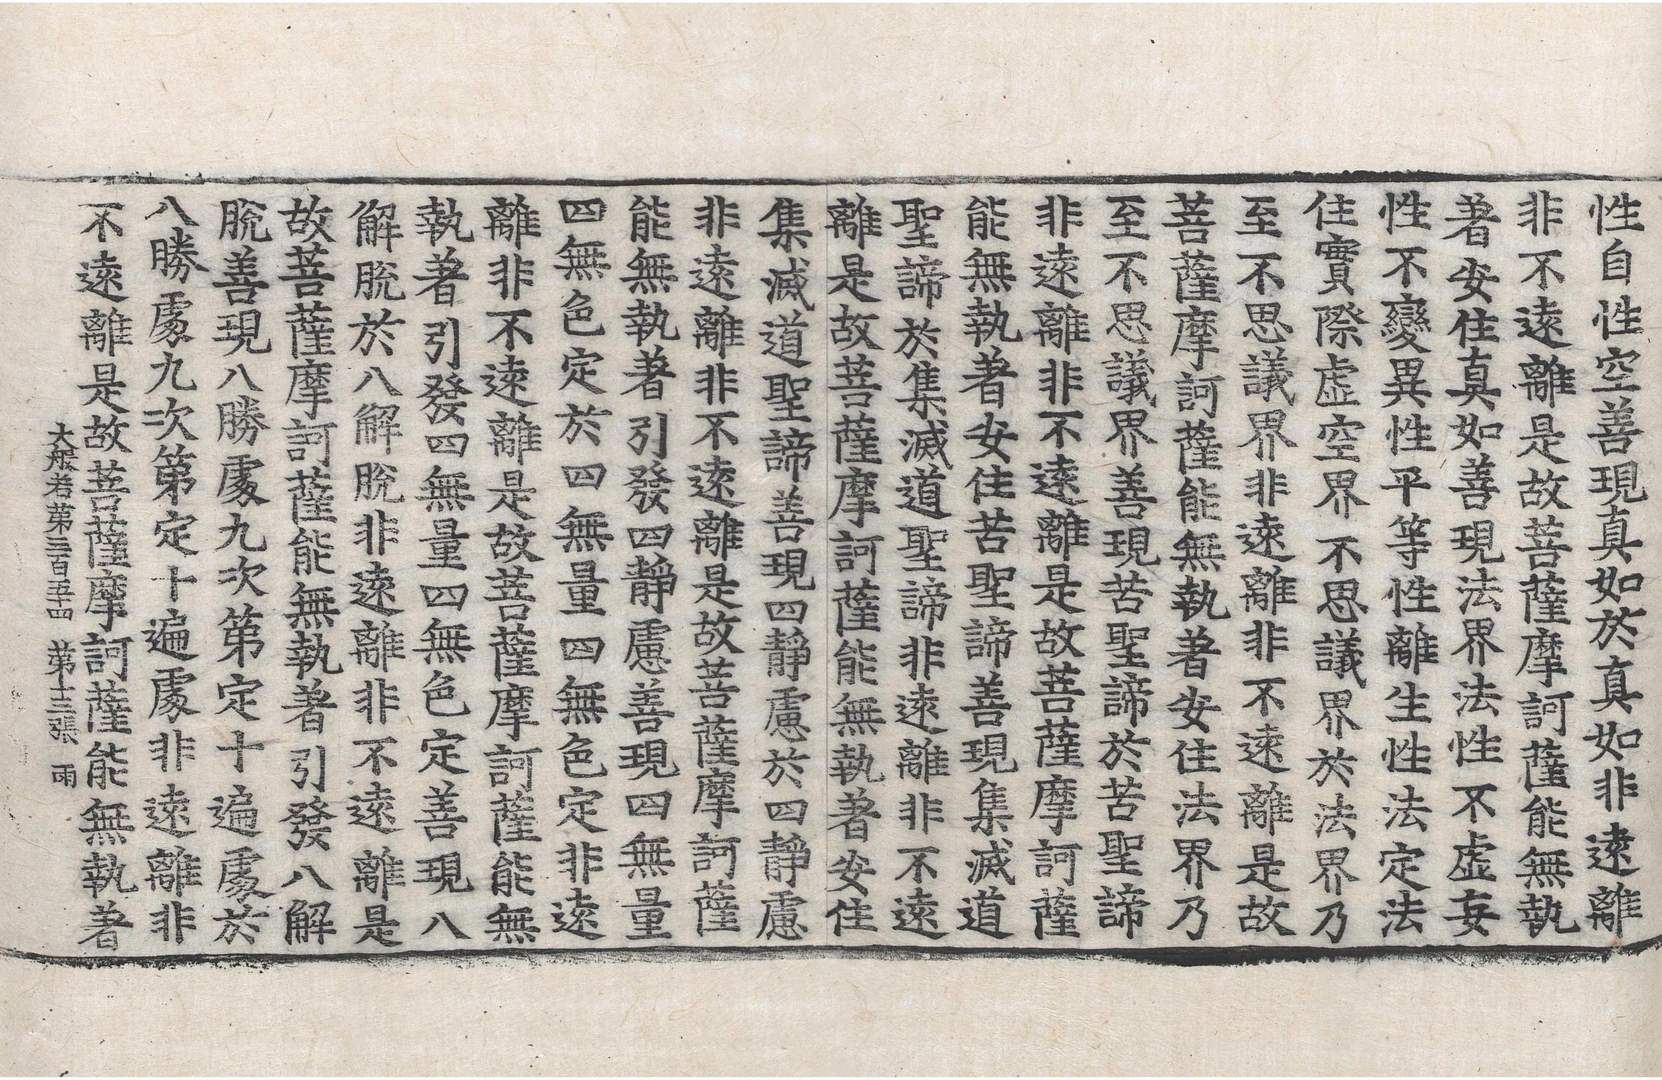 性自性空善現真如於真如非遠離
非不遠離是故菩薩摩訶薩能無執
著安住真如善現法界法性不虛妄
性不變異性平等性離生性法定法
住實際虛空界不思議界於法界乃
至不思議界非遠離非不遠離是故
菩薩摩訶薩能無執著安住法界乃
至不思議界善現苦聖諦於苦聖諦
非遠離非不遠離是故菩薩摩訶薩
能無執著安住苦聖諦善現集滅道
聖諦於集滅道聖諦非遠離非不遠
離是故菩薩摩訶薩能無執著安住
集滅道聖諦善現四靜慮於四靜慮
非遠離非不遠離是故菩薩摩訶薩
能無執著引發四靜慮善現四無量
四無色定於四無量四無色定非遠
離非不遠離是故菩薩摩訶薩能無
執著引發四無量四無色定善現八
解脫於八解脫非遠離非不遠離是
故菩薩摩訶薩能無執著引發八解
脫善現八勝處九次第定十遍處於
八勝處九次第定十遍處非遠離非
不遠離是故菩薩摩訶薩能無執著
大般若第三百五十四 第十三張 雨